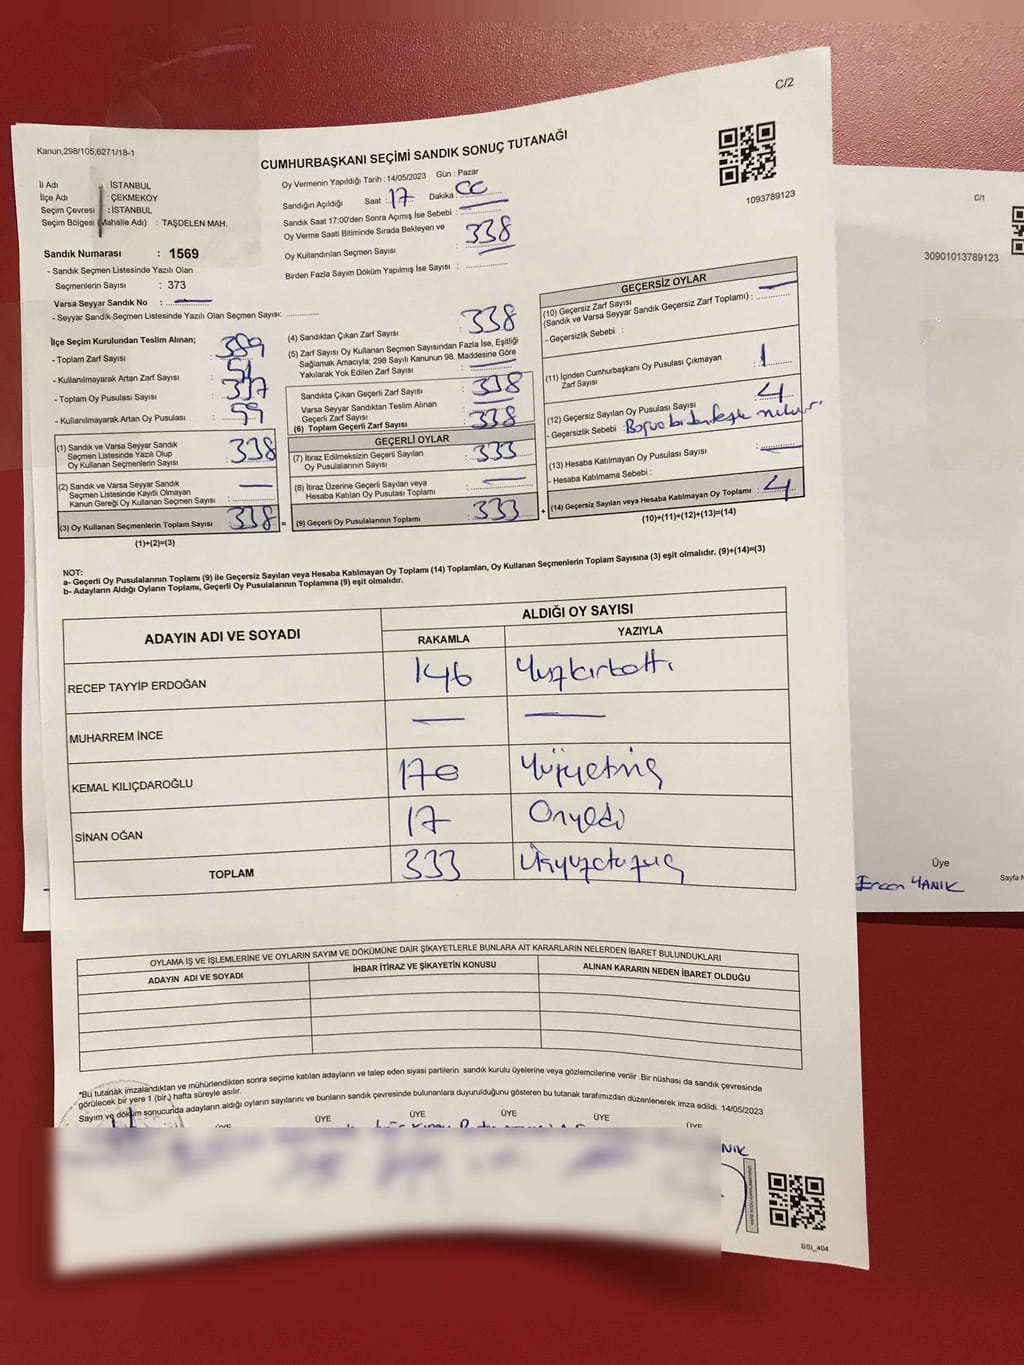 C/2
Kanun;298/105,6271/18-1
CUMHURBAŞKANI SEÇİMİ SANDIK SONUÇ TUTANAĞI
1093789123
İl Adı : İSTANBUL
İlçe Adı : ÇEKMEKÖY
Seçim Çevresi : İSTANBUL
Seçim Bölgesi (Mahalle Adı) : TAŞDELEN MAH.
Sandık Numarası : 1569
- Sandık Seçmen Listesinde Yazılı Olan
Seçmenlerin Sayısı : 373
Varsa Seyyar Sandık No : —
- Seyyar Sandık Seçmen Listesinde Yazılı Olan Seçmen Sayısı:
Oy Vermenin Yapıldığı Tarih : 14/05/2023 Gün : Pazar
Sandığın Açıldığı Saat : 17 Dakika :
Sandık Saat 17:00'den Sonra Açımış İse Sebebi :
Oy Verme Saati Bitiminde Sırada Bekleyen ve
Oy Kullandırılan Seçmen Sayısı : 338
Birden Fazla Sayım Döküm Yapılmış İse Sayısı :
İlçe Seçim Kurulundan Teslim Alınan;
- Toplam Zarf Sayısı : 389
- Kullanılmayarak Artan Zarf Sayısı : 51
- Toplam Oy Pusulası Sayısı :
- Kullanılmayarak Artan Oy Pusulası :
(1) Sandık ve Varsa Seyyar Sandık
Seçmen Listesinde Yazılı Olup
Oy Kullanan Seçmenlerin Sayısı : 338
(2) Sandık ve Varsa Seyyar Sandık
Seçmen Listesinde Kayıtlı Olmayan
Kanun Gereği Oy Kullanan Seçmen Sayısı : —
(3) Oy Kullanan Seçmenlerin Toplam Sayısı : 338 =
(1)+(2)=(3)
(4) Sandıktan Çıkan Zarf Sayısı : 338
(5) Zarf Sayısı Oy Kullanan Seçmen Sayısından Fazla İse, Eşitliği
Sağlamak Amacıyla; 298 Sayılı Kanunun 98. Maddesine Göre
Yakılarak Yok Edilen Zarf Sayısı : —
Sandıkta Çıkan Geçerli Zarf Sayısı : 338
Varsa Seyyar Sandıktan Teslim Alınan
Geçerli Zarf Sayısı : —
(6) Toplam Geçerli Zarf Sayısı : 338
GEÇERLİ OYLAR
(7) İtiraz Edilmeksizin Geçerli Sayılan
Oy Pusulalarının Sayısı : 333
(8) İtiraz Üzerine Geçerli Sayılan veya
Hesaba Katılan Oy Pusulası Toplamı : —
(9) Geçerli Oy Pusulalarının Toplamı : 333 +
GEÇERSİZ OYLAR
(10) Geçersiz Zarf Sayısı
(Sandık ve Varsa Seyyar Sandık Geçersiz Zarf Toplamı) : —
- Geçersizlik Sebebi :
(11) İçinden Cumhurbaşkanı Oy Pusulası Çıkmayan
Zarf Sayısı : 1
(12) Geçersiz Sayılan Oy Pusulası Sayısı : 4
- Geçersizlik Sebebi :
(13) Hesaba Katılmayan Oy Pusulası Sayısı : —
- Hesaba Katılmama Sebebi :
(14) Geçersiz Sayılan veya Hesaba Katılmayan Oy Toplamı : 4
(10)+(11)+(12)+(13)=(14)
NOT:
a- Geçerli Oy Pusulalarının Toplamı (9) ile Geçersiz Sayılan veya Hesaba Katılmayan Oy Toplamı (14) Toplamları, Oy Kullanan Seçmenlerin Toplam Sayısına (3) eşit olmalıdır. (9)+(14)=(3)
b- Adayların Aldığı Oyların Toplamı, Geçerli Oy Pusulalarının Toplamına (9) eşit olmalıdır.
ADAYIN ADI VE SOYADI
ALDIĞI OY SAYISI
RAKAMLA YAZIYLA
RECEP TAYYİP ERDOĞAN 146 Yüzkırkaltı
MUHARREM İNCE — —
KEMAL KILIÇDAROĞLU 170 Yüzyetmiş
SİNAN OĞAN 17 Onyedi
TOPLAM 333 Üçyüzotuzüç
OYLAMA İŞ VE İŞLEMLERİNE VE OYLARIN SAYIM VE DÖKÜMÜNE DAİR ŞİKAYETLERLE BUNLARA AİT KARARLARIN NELERDEN İBARET BULUNDUKLARI
ADAYIN ADI VE SOYADI İHBAR İTİRAZ VE ŞİKAYETİN KONUSU ALINAN KARARIN NEDEN İBARET OLDUĞU
*Bu tutanak imzalandıktan ve mühürlendikten sonra seçime katılan adayların ve talep eden siyasi partilerin sandık kurulu üyelerine veya gözlemcilerine verilir .Bir nüshası da sandık çevresinde
görülecek bir yere 1 (bir.) hafta süreyle asılır.
Sayım ve döküm sonucunda adayların aldığı oyların sayılarını ve bunların sandık çevresinde bulunanlara duyurulduğunu gösteren bu tutanak tarafımızdan düzenlenerek imza edildi. 14/05/2023
ÜYE ÜYE ÜYE ÜYE ÜYE ÜYE
NIK
SSI_404
C/1
30901013789123
Üye
Ercan YANIK
Sayfa N